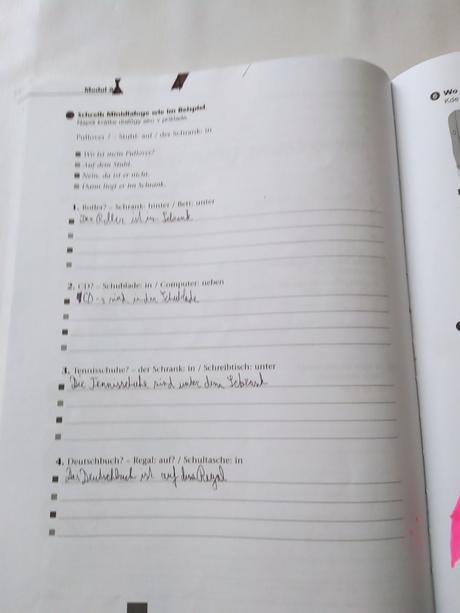 Modul 8
Schreib Minidialoge wie im Beispiel.
Napíš krátke dialógy ako v príklade.
Pullover? – Stuhl: auf / der Schrank: in
Wo ist mein Pullover?
Auf dem Stuhl.
Nein, da ist er nicht.
Dann liegt er im Schrank.
1. Roller? – Schrank: hinter / Bett: unter
Der Roller ist im Schrank
2. CD? – Schublade: in / Computer: neben
CD-s sind in der Schublade
3. Tennisschuhe? – der Schrank: in / Schreibtisch: unter
Die Tennisschuhe sind unter dem
4. Deutschbuch? – Regal: auf? / Schultasche: in
Das Deutschbuch ist auf dem Regal
6 Wo
Kde